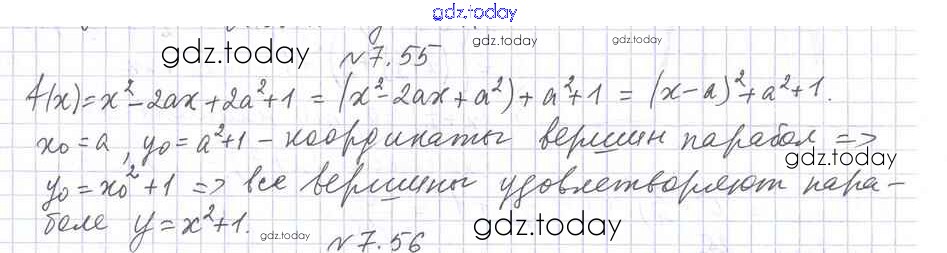 gdz.today
gdz.today №7.55 gdz.today gdz.today
f(x)=x²-2ax+2a²+1 = (x²-2ax+a²)+a²+1 = (x-a)²+a²+1.
x₀=a, y₀=a²+1 - координаты вершин парабол =>
gdz.today
y₀=x₀²+1 => все вершины удовлетворяют пара-
боле y=x²+1. gdz.today gdz.today
№7.56